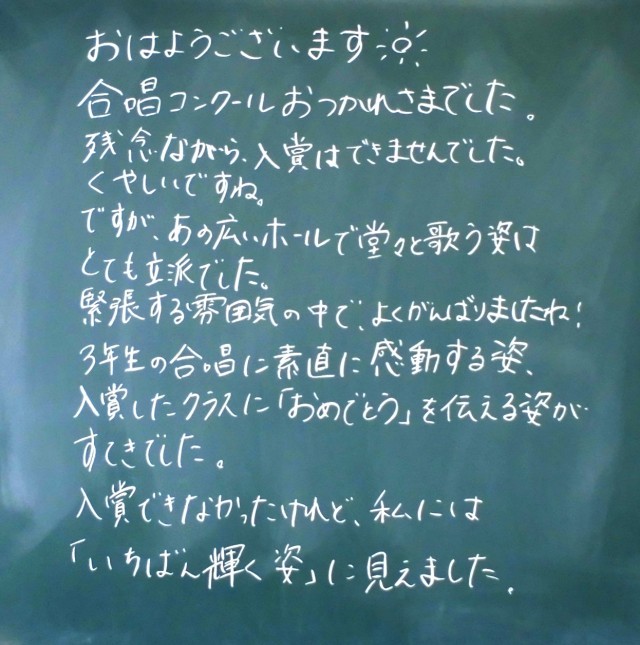 おはようございます
合唱コンクールおつかれさまでした。
残念ながら、入賞はできませんでした。
くやしいですね。
ですが、あの広いホールで堂々と歌う姿は
とても立派でした。
緊張する雰囲気の中で、よくがんばりましたね!
3年生の合唱に素直に感動する姿、
入賞したクラスに「おめでとう」を伝える姿が
すてきでした。
入賞できなかったけれど、私には
「いちばん輝く姿」に見えました。